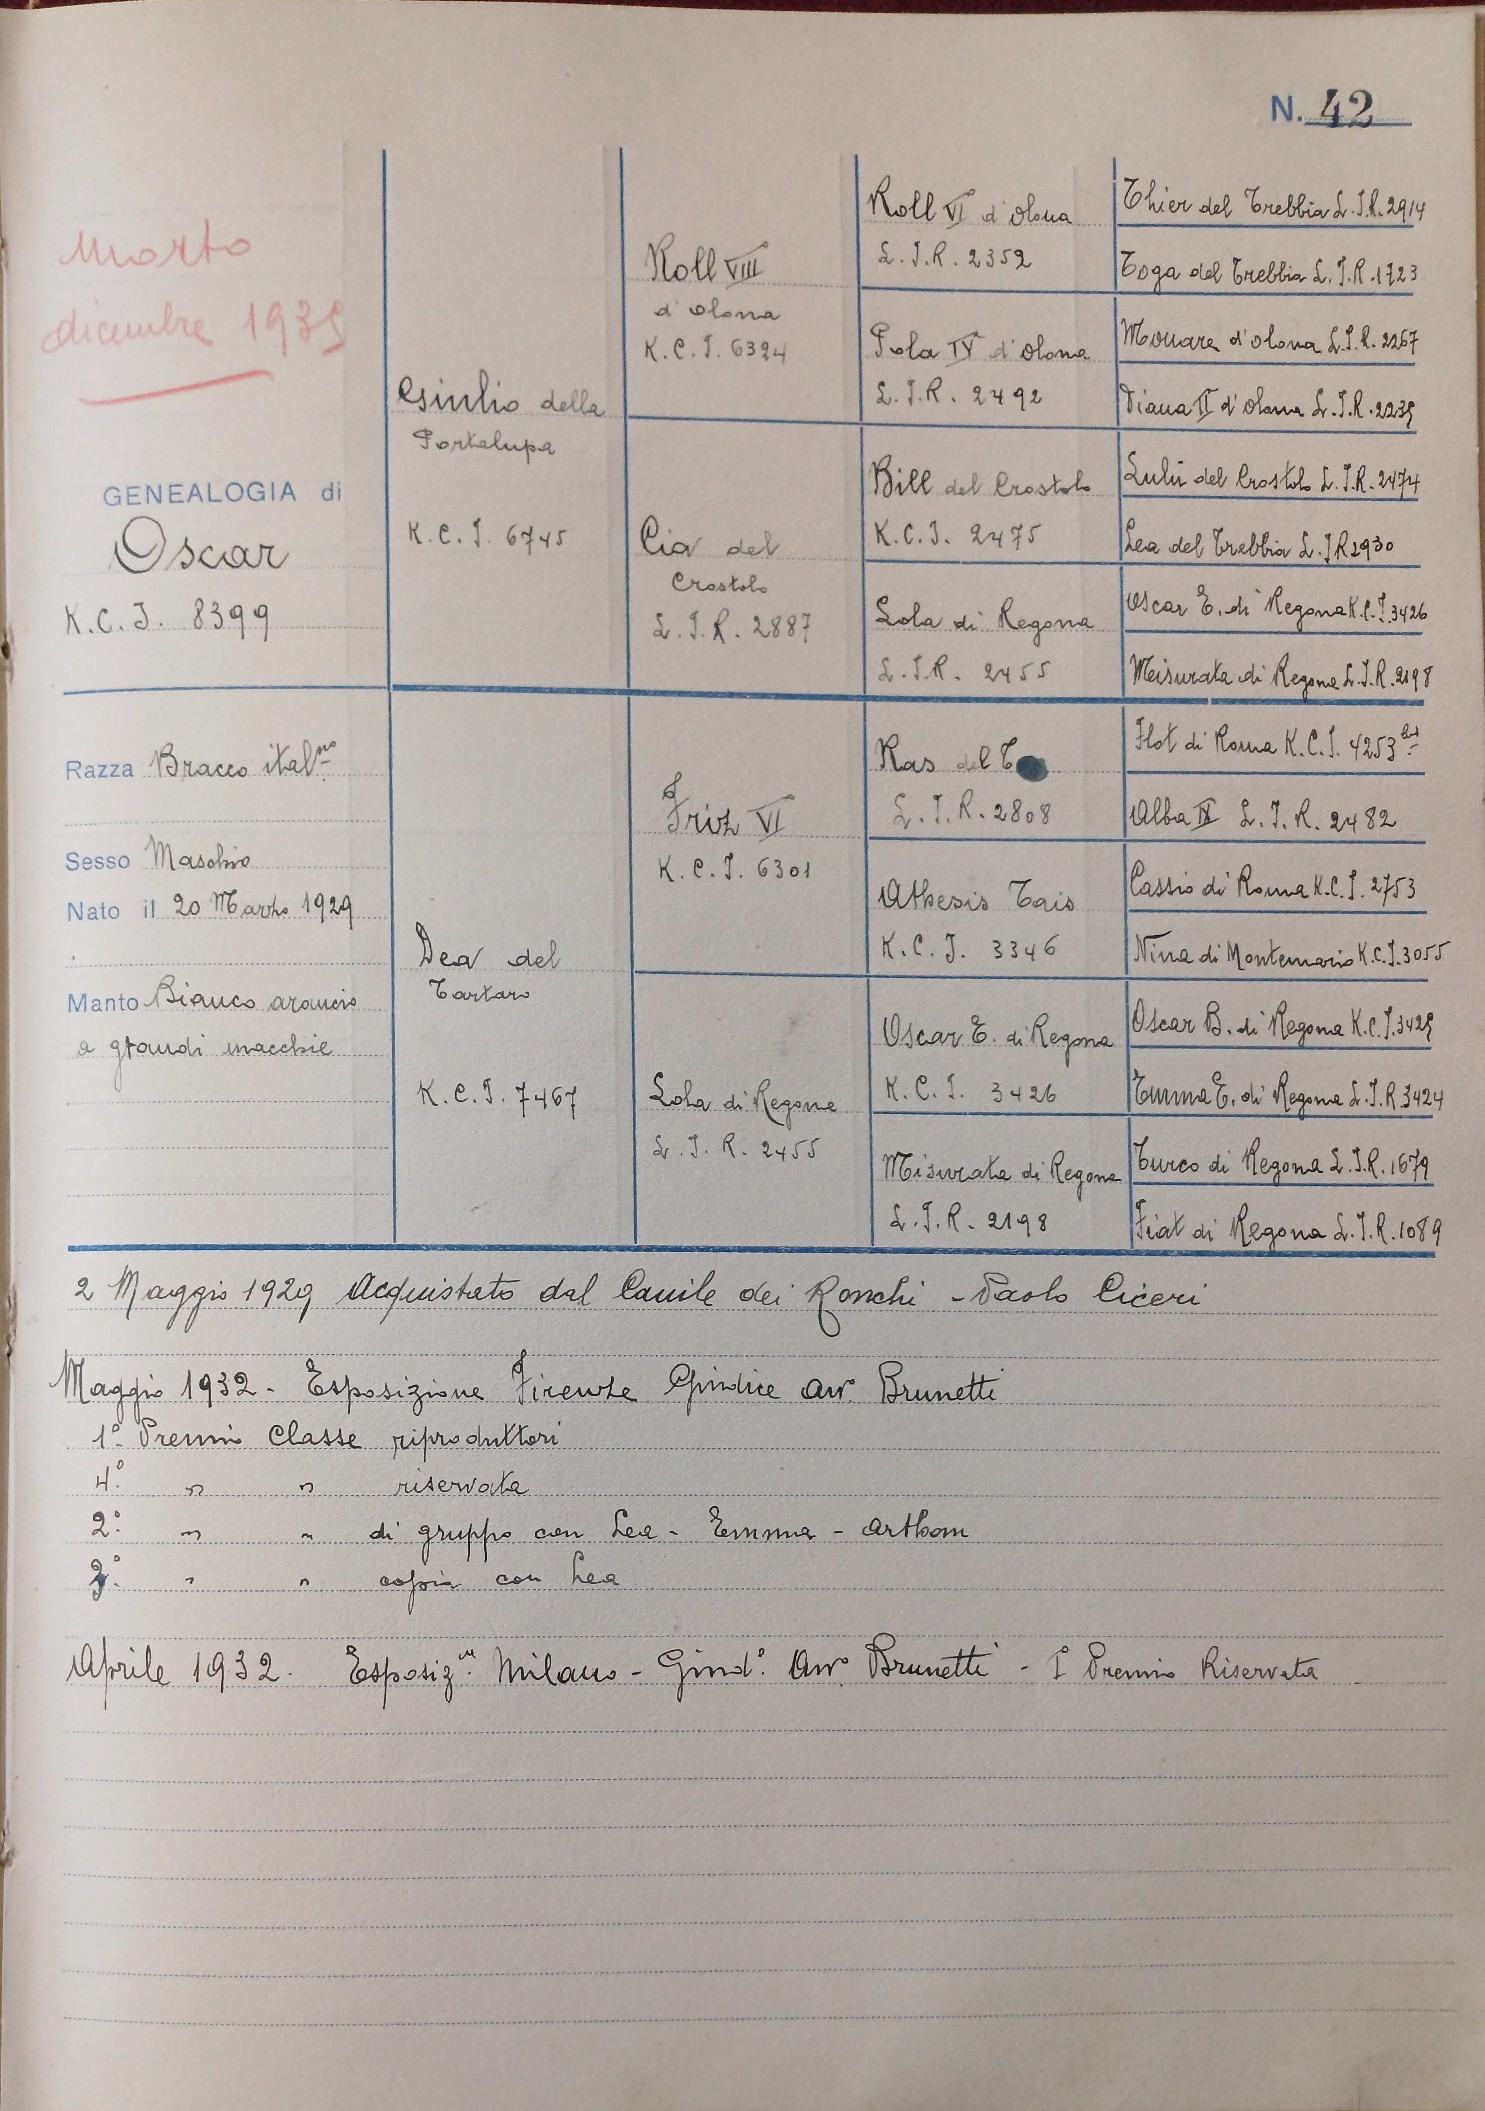 N. 42
morto
dicembre 1935
GENEALOGIA di
Oscar
K.C.I. 8399
Razza Bracco ital.no
Sesso Maschio
Nato il 20 Marzo 1929
Manto Bianco arancio
a grandi macchie
Giulio della
Portalupa
K.C.I. 6745
Dea del
Tartaro
K.C.I. 7467
Roll VIII
d'Olona
K.C.I. 6324
Cia del
Crostolo
L.I.R. 2887
Friz VI
K.C.I. 6301
Lola di Regona
L.I.R. 2455
Roll VI d'Olona
L.I.R. 2352
Pola IV d'Olona
L.I.R. 2492
Bill del Crostolo
K.C.I. 2475
Lola di Regona
L.I.R. 2455
Ras del
L.I.R. 2808
Athesis Tais
K.C.I. 3346
Oscar E. di Regona
K.C.I. 3426
Misurata di Regona
L.I.R. 2198
Thier del Trebbia L.I.R. 2914
Toga del Trebbia L.I.R. 1723
d'Olona L.I.R. 2267
Diana II d'Olona L.I.R. 2235
Lulù del Crostolo L.I.R. 2474
Lea del Trebbia L.I.R 2930
Oscar E. di Regona K.C.I. 3426
Misurata di Regona L.I.R. 2198
Flot di Roma K.C.I. 4253
Alba IV L.I.R. 2482
Cassio di Roma K.C.I. 2753
Nina di Montemario K.C.I. 3055
Oscar B. di Regona K.C.I. 3425
Emma E. di Regona L.I.R 3424
Turco di Regona L.I.R. 1679
Fiat di Regona L.I.R. 1089
2 Maggio 1929 Acquistato dal Canile dei Ronchi - Paolo Ciceri
Maggio 1932 - Esposizione Firenze Giudice avv. Brunetti
1° Premio Classe riproduttori
4° " " riservata
2° " " di gruppo con Lea - Emma - Arthom
" " copia con Lea
Aprile 1932. Esposiz.ne Milano - Giud.e Avv. Brunetti - I Premio Riservata